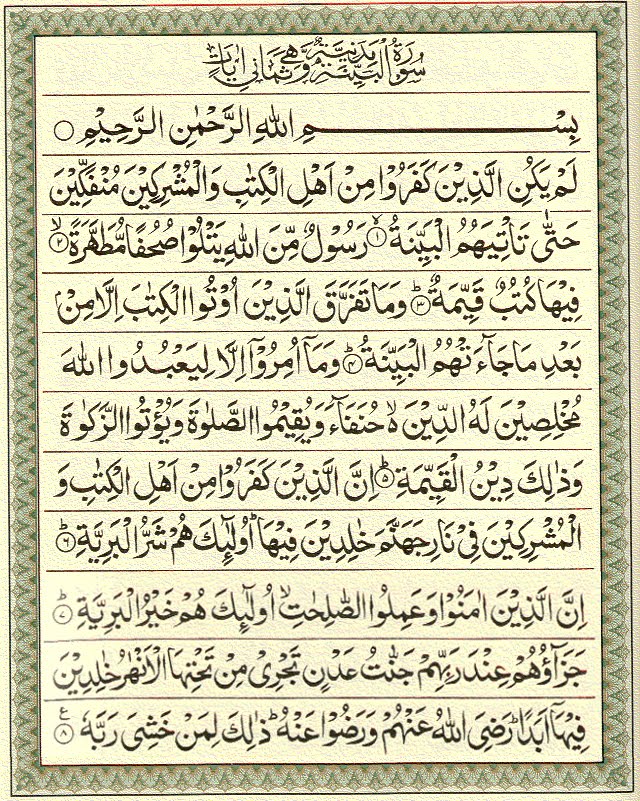 سُوْرَةُ الْبَيِّنَةِ مَدَنِيَّةٌ وَّهِيَ ثَمَانِيْ اٰيَاتٍ
بِسْمِ اللهِ الرَّحْمٰنِ الرَّحِيْمِ ○
لَمْ يَكُنِ الَّذِيْنَ كَفَرُوْا مِنْ اَهْلِ الْكِتٰبِ وَالْمُشْرِكِيْنَ مُنْفَكِّيْنَ
حَتّٰى تَاْتِيَهُمُ الْبَيِّنَةُ ۙ﴿۱﴾ رَسُوْلٌ مِّنَ اللهِ يَتْلُوْا صُحُفًا مُّطَهَّرَةً ۙ﴿۲﴾
فِيْهَا كُتُبٌ قَيِّمَةٌ ؕ﴿۳﴾ وَمَا تَفَرَّقَ الَّذِيْنَ اُوْتُوا الْكِتٰبَ اِلَّا مِنْۢ
بَعْدِ مَا جَآءَتْهُمُ الْبَيِّنَةُ ؕ﴿۴﴾ وَمَاۤ اُمِرُوْۤا اِلَّا لِيَعْبُدُوا اللهَ
مُخْلِصِيْنَ لَهُ الدِّيْنَ ۙ۬ حُنَفَآءَ وَيُقِيْمُوا الصَّلٰوةَ وَيُؤْتُوا الزَّكٰوةَ
وَذٰلِكَ دِيْنُ الْقَيِّمَةِ ؕ﴿۵﴾ اِنَّ الَّذِيْنَ كَفَرُوْا مِنْ اَهْلِ الْكِتٰبِ وَ
الْمُشْرِكِيْنَ فِيْ نَارِ جَهَنَّمَ خٰلِدِيْنَ فِيْهَا ؕ اُولٰٓئِكَ هُمْ شَرُّ الْبَرِيَّةِ ؕ﴿۶﴾
اِنَّ الَّذِيْنَ اٰمَنُوْا وَعَمِلُوا الصّٰلِحٰتِ ۙ اُولٰٓئِكَ هُمْ خَيْرُ الْبَرِيَّةِ ؕ﴿۷﴾
جَزَآؤُهُمْ عِنْدَ رَبِّهِمْ جَنّٰتُ عَدْنٍ تَجْرِيْ مِنْ تَحْتِهَا الْاَنْهٰرُ خٰلِدِيْنَ
فِيْهَاۤ اَبَدًا ؕ رَضِيَ اللهُ عَنْهُمْ وَرَضُوْا عَنْهُ ؕ ذٰلِكَ لِمَنْ خَشِيَ رَبَّهٗ ﴿۸﴾ ع